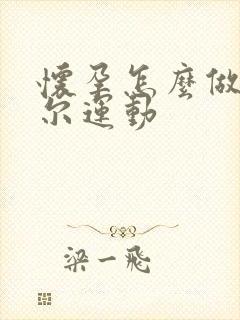 懷孕怎麼做
尔運動
梁一飛